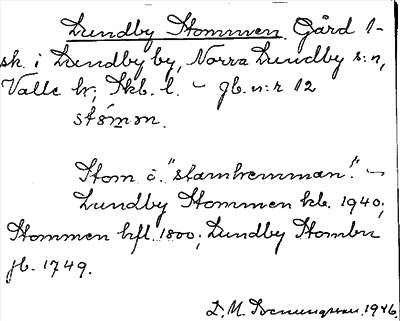 Lundby Stommen. Gård 1-
sk. i Lundby by, Norra Lundby s:n,
Valle hr; Skb. l. - jb. n:r 12
stómmn.
Stom ö. "stamhemman". -
Lundby Stommen kb. 1940;
Stommen hfl. 1800; Lundby Stombn
jb. 1749.
D. M. 1946.